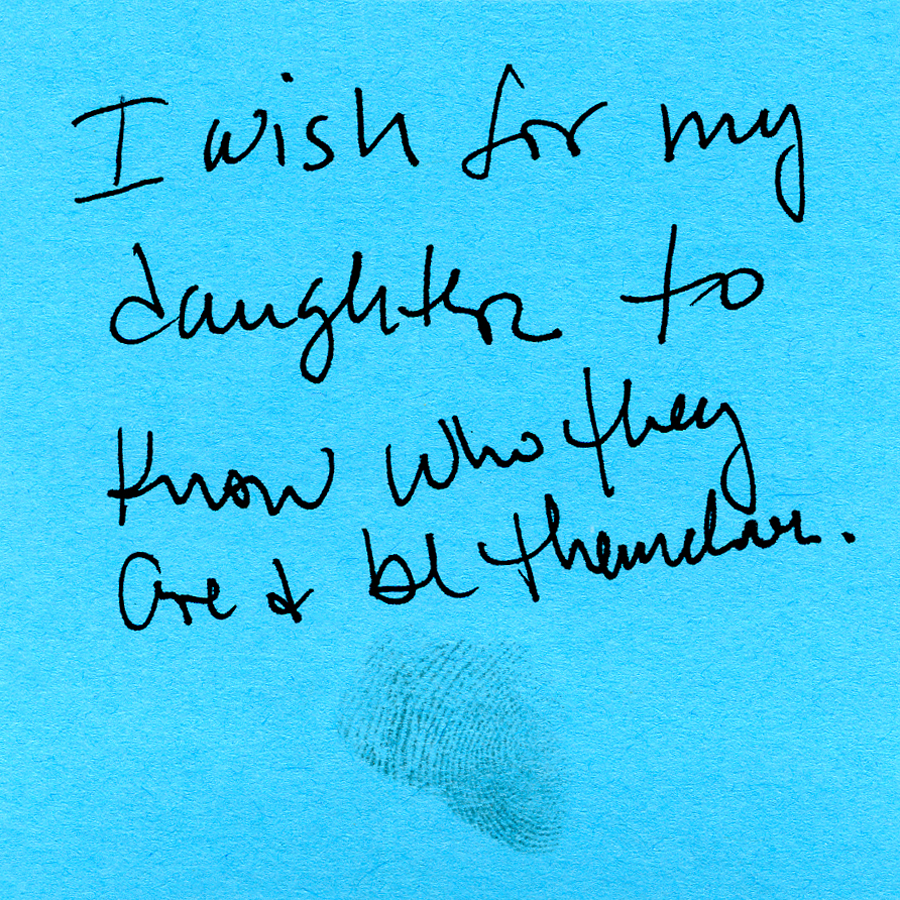 I wish for my
daughter to
know who they
are & be themselves.